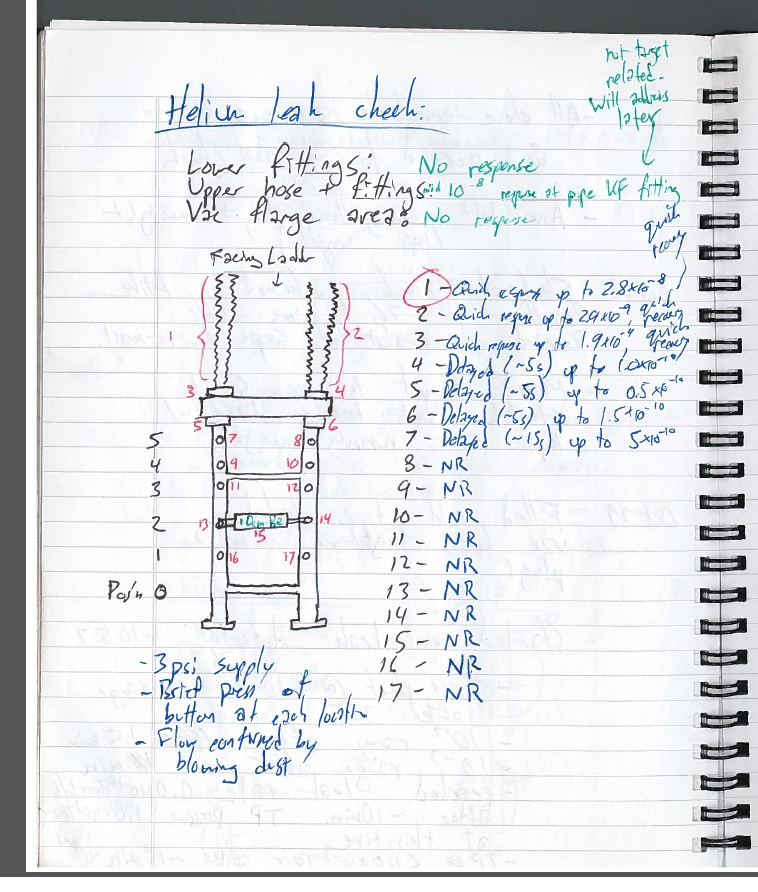 not target
related.
Will address
later
Helium leak check:
Lower fittings: No response
Upper hose + fittings: mid 10^-8 response at pipe KF fitting
Vac flange area: No response
quick
recovery
Facing Ladder
1 - Quick response up to 2.8x10^-8
2 - Quick response up to 2.9x10^-9 quick recovery
3 - Quick response up to 1.9x10^-9 quick recovery
4 - Delayed (~5s) up to 1.0x10^-10
5 - Delayed (~5s) up to 0.5x10^-10
6 - Delayed (~5s) up to 1.5x10^-10
7 - Delayed (~15s) up to 5x10^-10
8 - NR
9 - NR
10 - NR
11 - NR
12 - NR
13 - NR
14 - NR
15 - NR
16 - NR
17 - NR
1 2
3 4
5 6
5 7 8
4 9 10
3 11 12
2 13 10cm Be 14
15
1 16 17
Pos'n 0
- 3 psi supply
- Brief press of
button at each location
- Flow confirmed by
blowing dust